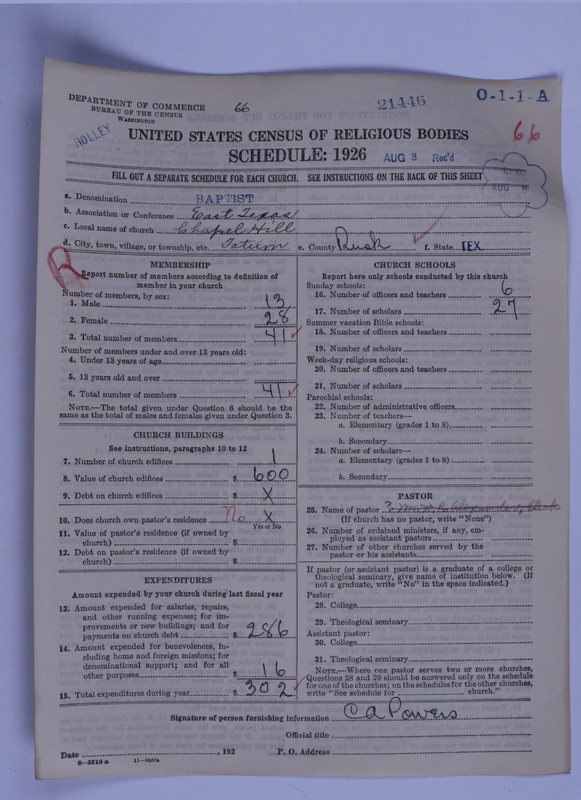 DEPARTMENT OF COMMERCE
BUREAU OF THE CENSUS
WASHINGTON
66
21446
O-1-1-A
HOLLEY
66
UNITED STATES CENSUS OF RELIGIOUS BODIES
SCHEDULE: 1926
AUG 3 Rec'd
AUG 8
FILL OUT A SEPARATE SCHEDULE FOR EACH CHURCH. SEE INSTRUCTIONS ON THE BACK OF THIS SHEET
a. Denomination BAPTIST
b. Association or Conference East Texas
c. Local name of church Chapel Hill
d. City, town, village, or township, etc. Tatum e. County Rusk f. State TEX.
R
MEMBERSHIP
Report number of members according to definition of
member in your church
Number of members, by sex:
1. Male 13
2. Female 28
3. Total number of members 41
Number of members under and over 13 years old:
4. Under 13 years of age
5. 13 years old and over
6. Total number of members 41
NOTE.—The total given under Question 6 should be the
same as the total of males and females given under Question 3.
CHURCH BUILDINGS
See instructions, paragraphs 10 to 12
7. Number of church edifices 1
8. Value of church edifices $ 600
9. Debt on church edifices $ X
10. Does church own pastor's residence No X
Yes or No
11. Value of pastor's residence (if owned by
church) $
12. Debt on pastor's residence (if owned by
church) $
EXPENDITURES
Amount expended by church during last fiscal year
13. Amount expended for salaries, repairs,
and other running expenses; for im-
provements or new buildings; and for
payments on church debt $ 286
14. Amount expended for benevolences, in-
cluding home and foreign missions; for
denominational support; and for all
other purposes $ 16
15. Total expenditures during year $ 302
CHURCH SCHOOLS
Report here only schools conducted by this church
Sunday schools:
16. Number of officers and teachers 6
17. Number of scholars 27
Summer vacation Bible schools:
18. Number of officers and teachers
19. Number of scholars
Week-day religious schools:
20. Number of officers and teachers
21. Number of scholars
Parochial schools:
22. Number of administrative officers
23. Number of teachers—
a. Elementary (grades 1 to 8)
b. Secondary
24. Number of scholars—
a. Elementary (grades 1 to 8)
b. Secondary
PASTOR
25. Name of pastor
(If church has no pastor, write "None")
26. Number of ordained ministers, if any, em-
ployed as assistant pastors
27. Number of other churches served by the
pastor or his assistants
If pastor (or assistant pastor) is a graduate of a college or
theological seminary, give name of institution below. (If
not a graduate, write "No" in the space indicated.)
Pastor:
28. College
29. Theological seminary
Assistant pastor:
30. College
31. Theological seminary
NOTE.—Where one pastor serves two or more churches,
Questions 28 and 29 should be answered only on the schedule
for one of the churches; on the schedules for the other churches,
write "See schedule for church."
Signature of person furnishing information C A Powers
Official title
Date , 192 P. O. Address
8—5518 a